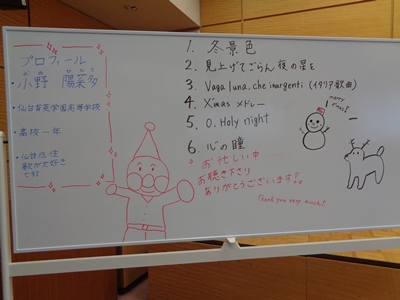 プロフィール
・小野 陽菜多
・仙台育英学園高等学校
・高校一年
・仙台在住
歌が大好き
です!
1. 冬景色
2. 見上げてごらん夜の星を
3. Vaga luna, che inargenti (イタリア歌曲)
4. X'mas メドレー
5. O. Holy night
6. 心の瞳
merry
X'mas!
お忙しい中
お聴き下さり
ありがとうございます!
Thank you very much!